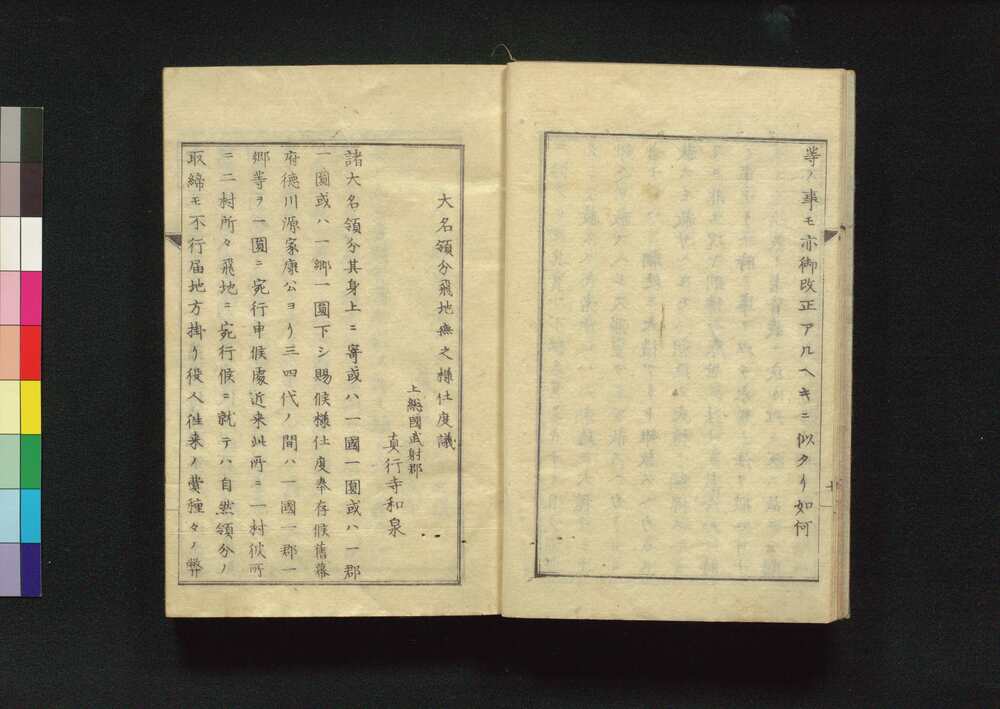 等ノ事モ亦御改正アルヘキニ似タリ如何
十
大名領分飛地無之様仕度議
上総國武射郡
真行寺和泉
諸大名領分其身上ニ寄或ハ一國一圓或ハ一郡
一圓或ハ一郷一圓下シ賜候様仕度奉存候舊幕
府徳川源家康公ヨリ三四代ノ間ハ一國一郡一
郷等ヲ一圓ニ宛行申候處近来此所ニ一村彼所
ニ二村所々飛地ニ宛行候ニ就テハ自然領分ノ
取締モ不行届地方掛リ役人往来ノ費種々ノ弊